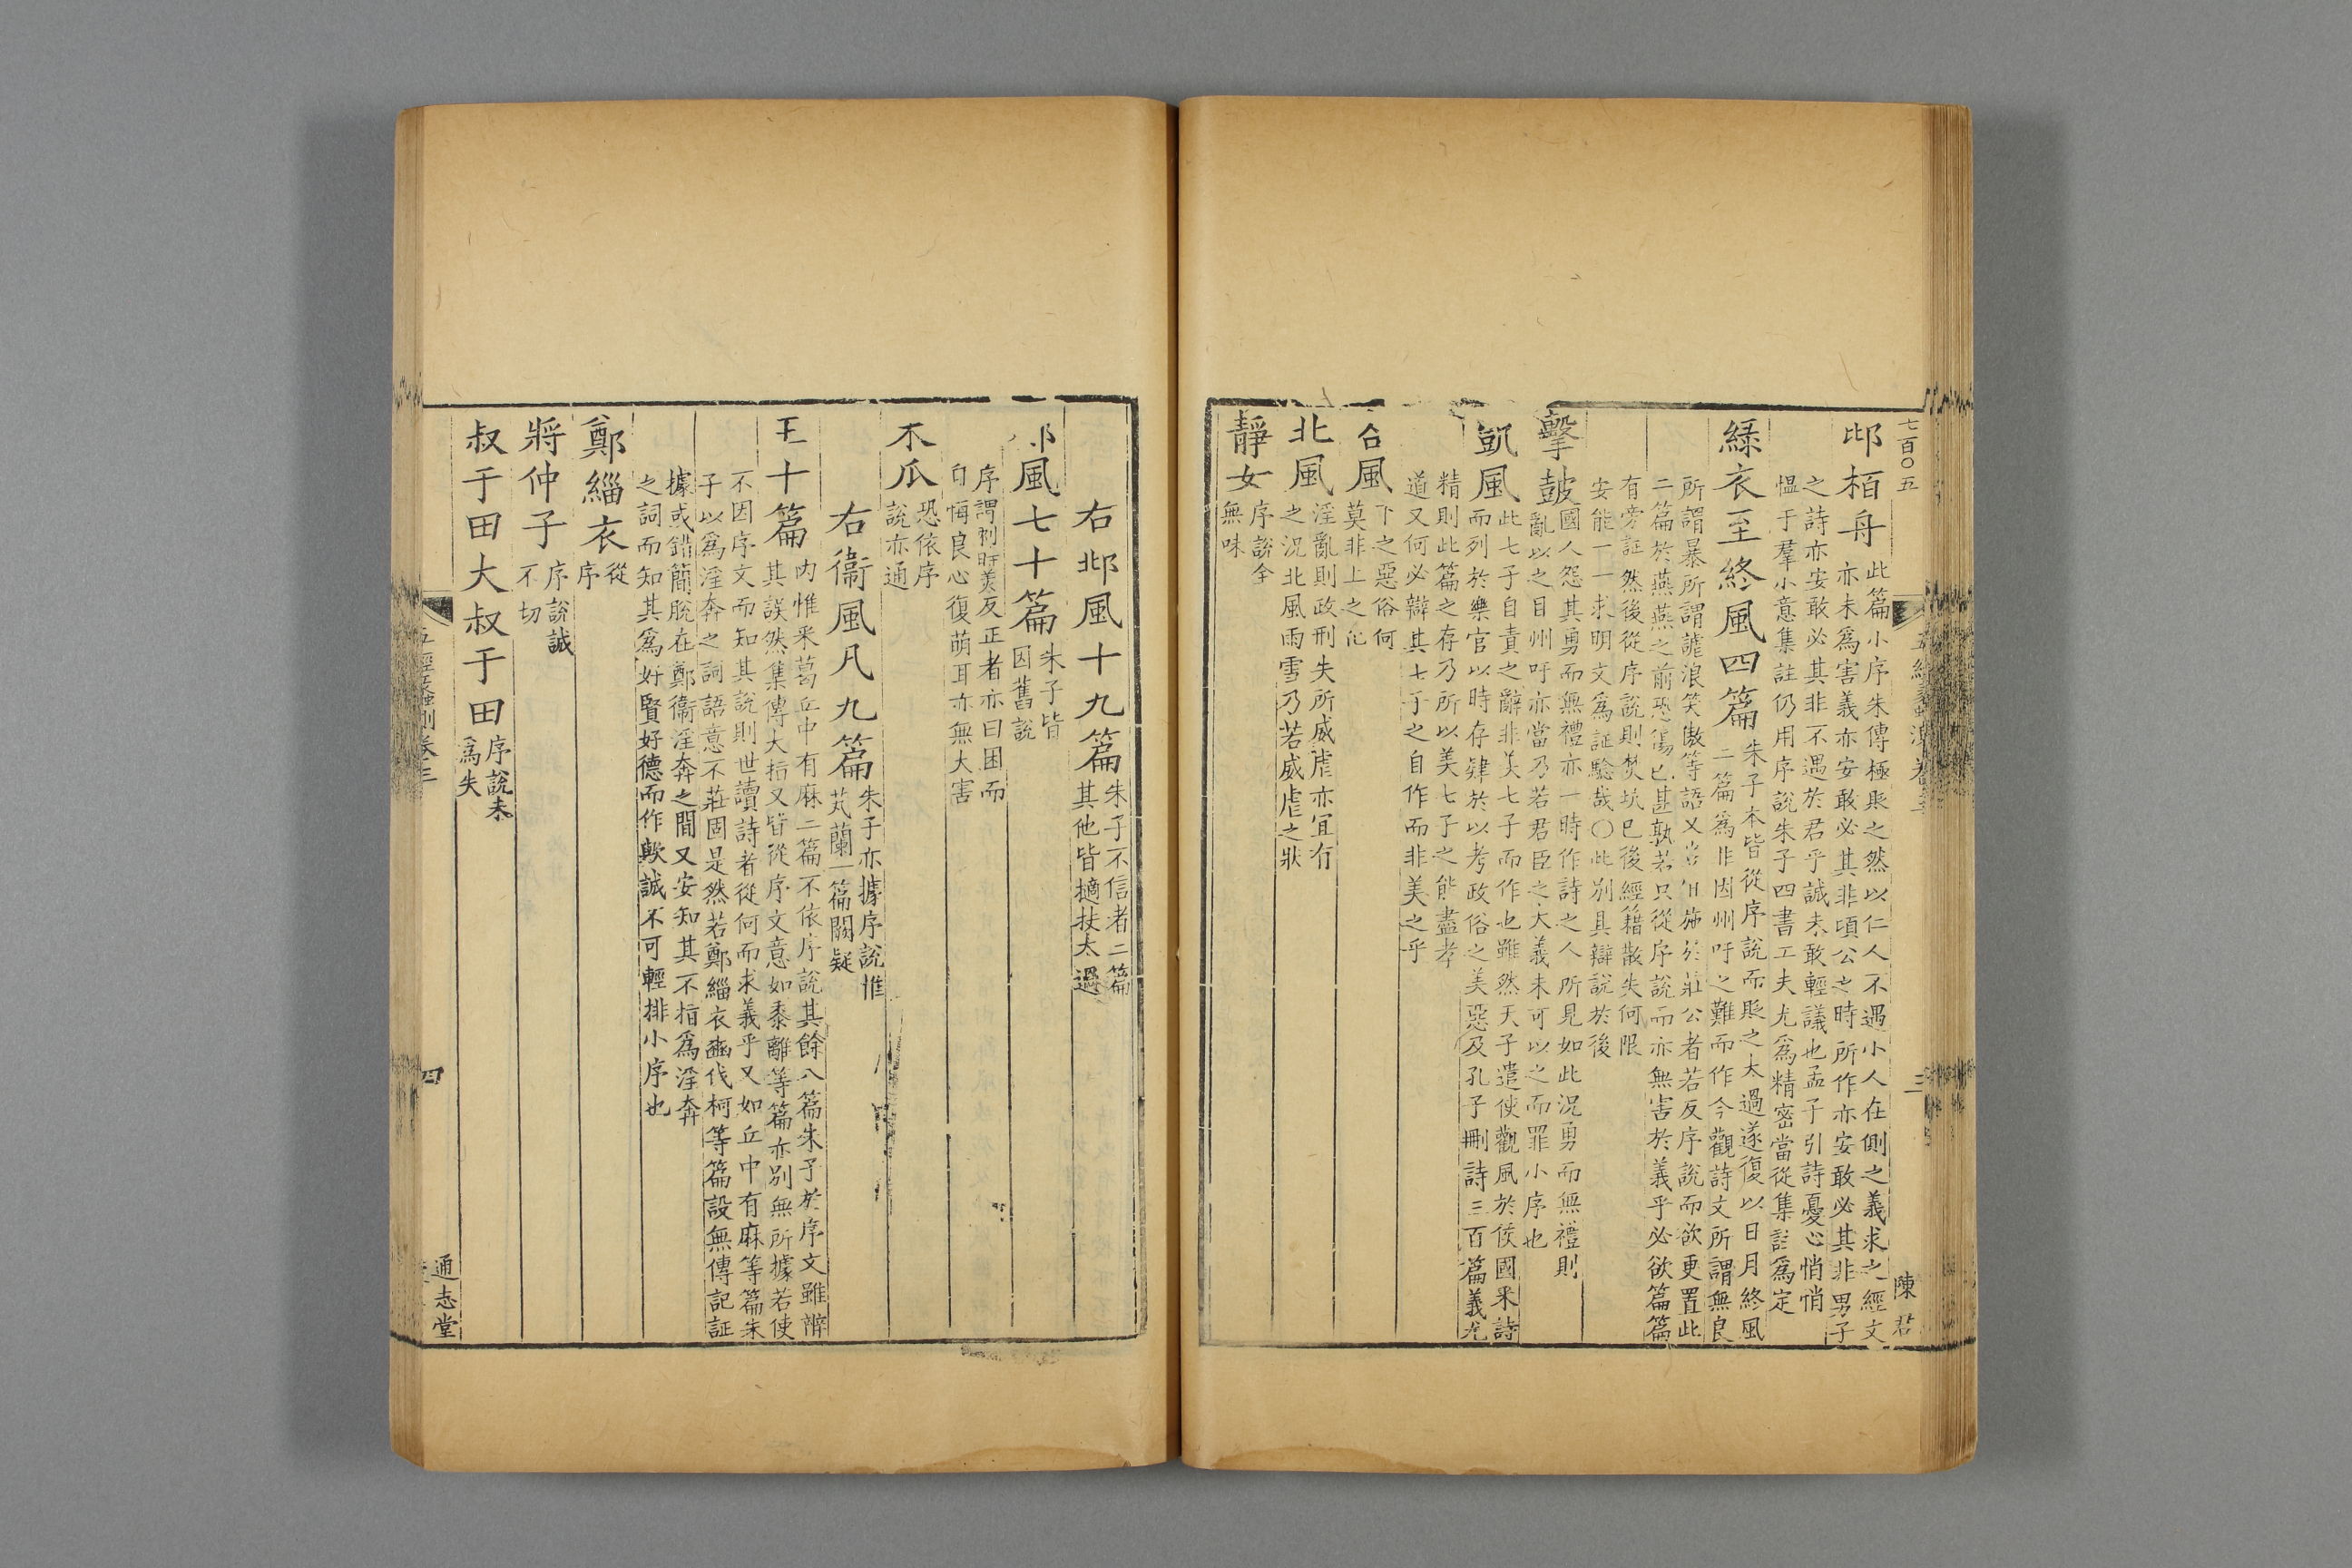 七百〇五
邶柏舟
此篇小序朱傳極𨳝之然以仁人不遇小人在側之義求之經文
亦未為害義亦安敢必其非頃公之時所作亦安敢必其非男子
之詩亦安敢必其非不遇於君乎誠未敢輕議也孟子引詩憂心悄悄
愠于羣小意集註仍用序說朱子四書工夫尤為精密當從集註為定
綠衣至終風四篇
朱子本皆從序說而𨳝之太過遂復以日月終風
二篇為非因州吁之難而作今觀詩文所謂無良
所謂暴所謂謔浪笑傲等語又豈但施於莊公者若反序說而欲更置此
二篇於燕燕之前恐傷已甚孰若只從序說而亦無害於義乎必欲篇篇
有旁証然後從序說則焚坑已後經籍散失何限
安能一一求明文為証驗哉〇此別具辯說於後
擊鼓
國人怨其勇而無禮亦一時作詩之人所見如此況勇而無禮則
亂以之目州吁亦當乃若君臣之大義未可以之而罪小序也
凱風
此七子自責之辭非美七子而作也雖然天子遣使觀風於侯國采詩
而列於樂官以時存肄於以考政俗之美惡及孔子刪詩三百篇義尤
精則此篇之存乃所以美七子之能盡孝
道又何必辯其七子之自作而非美之乎
谷風
下之惡俗何
莫非上之化
北風
淫亂則政刑失所威虐亦宜有
之況北風雨雪乃若威虐之狀
靜女
序說全
無味
五經蠡測卷三
三
陳君
右邶風十九篇
朱子不信者二篇
其他皆擿抉太過
鄘風七十篇
朱子皆
因舊說
序謂刺時美反正者亦曰困而
自悔良心復萌耳亦無大害
木瓜
恐依序
說亦通
右衞風凡九篇
朱子亦據序說惟
芄蘭一篇闕疑
王十篇
內惟采葛丘中有麻二篇不依序說其餘八篇朱子於序文雖辯
其誤然集傳大指又皆從序文意如黍離等篇亦別無所據若使
不因序文而知其說則世讀詩者從何而求義乎又如丘中有麻等篇朱
子以為淫奔之詞語意不莊固是然若鄭緇衣豳伐柯等篇設無傳記証
據或錯簡脫在鄭衞淫奔之間又安知其不指為淫奔
之詞而知其為好賢好德而作歟誠不可輕排小序也
鄭緇衣
從
序
將仲子
序說誠
不切
叔于田大叔于田
序說未
為失
五經蠡測卷三
四
通志堂